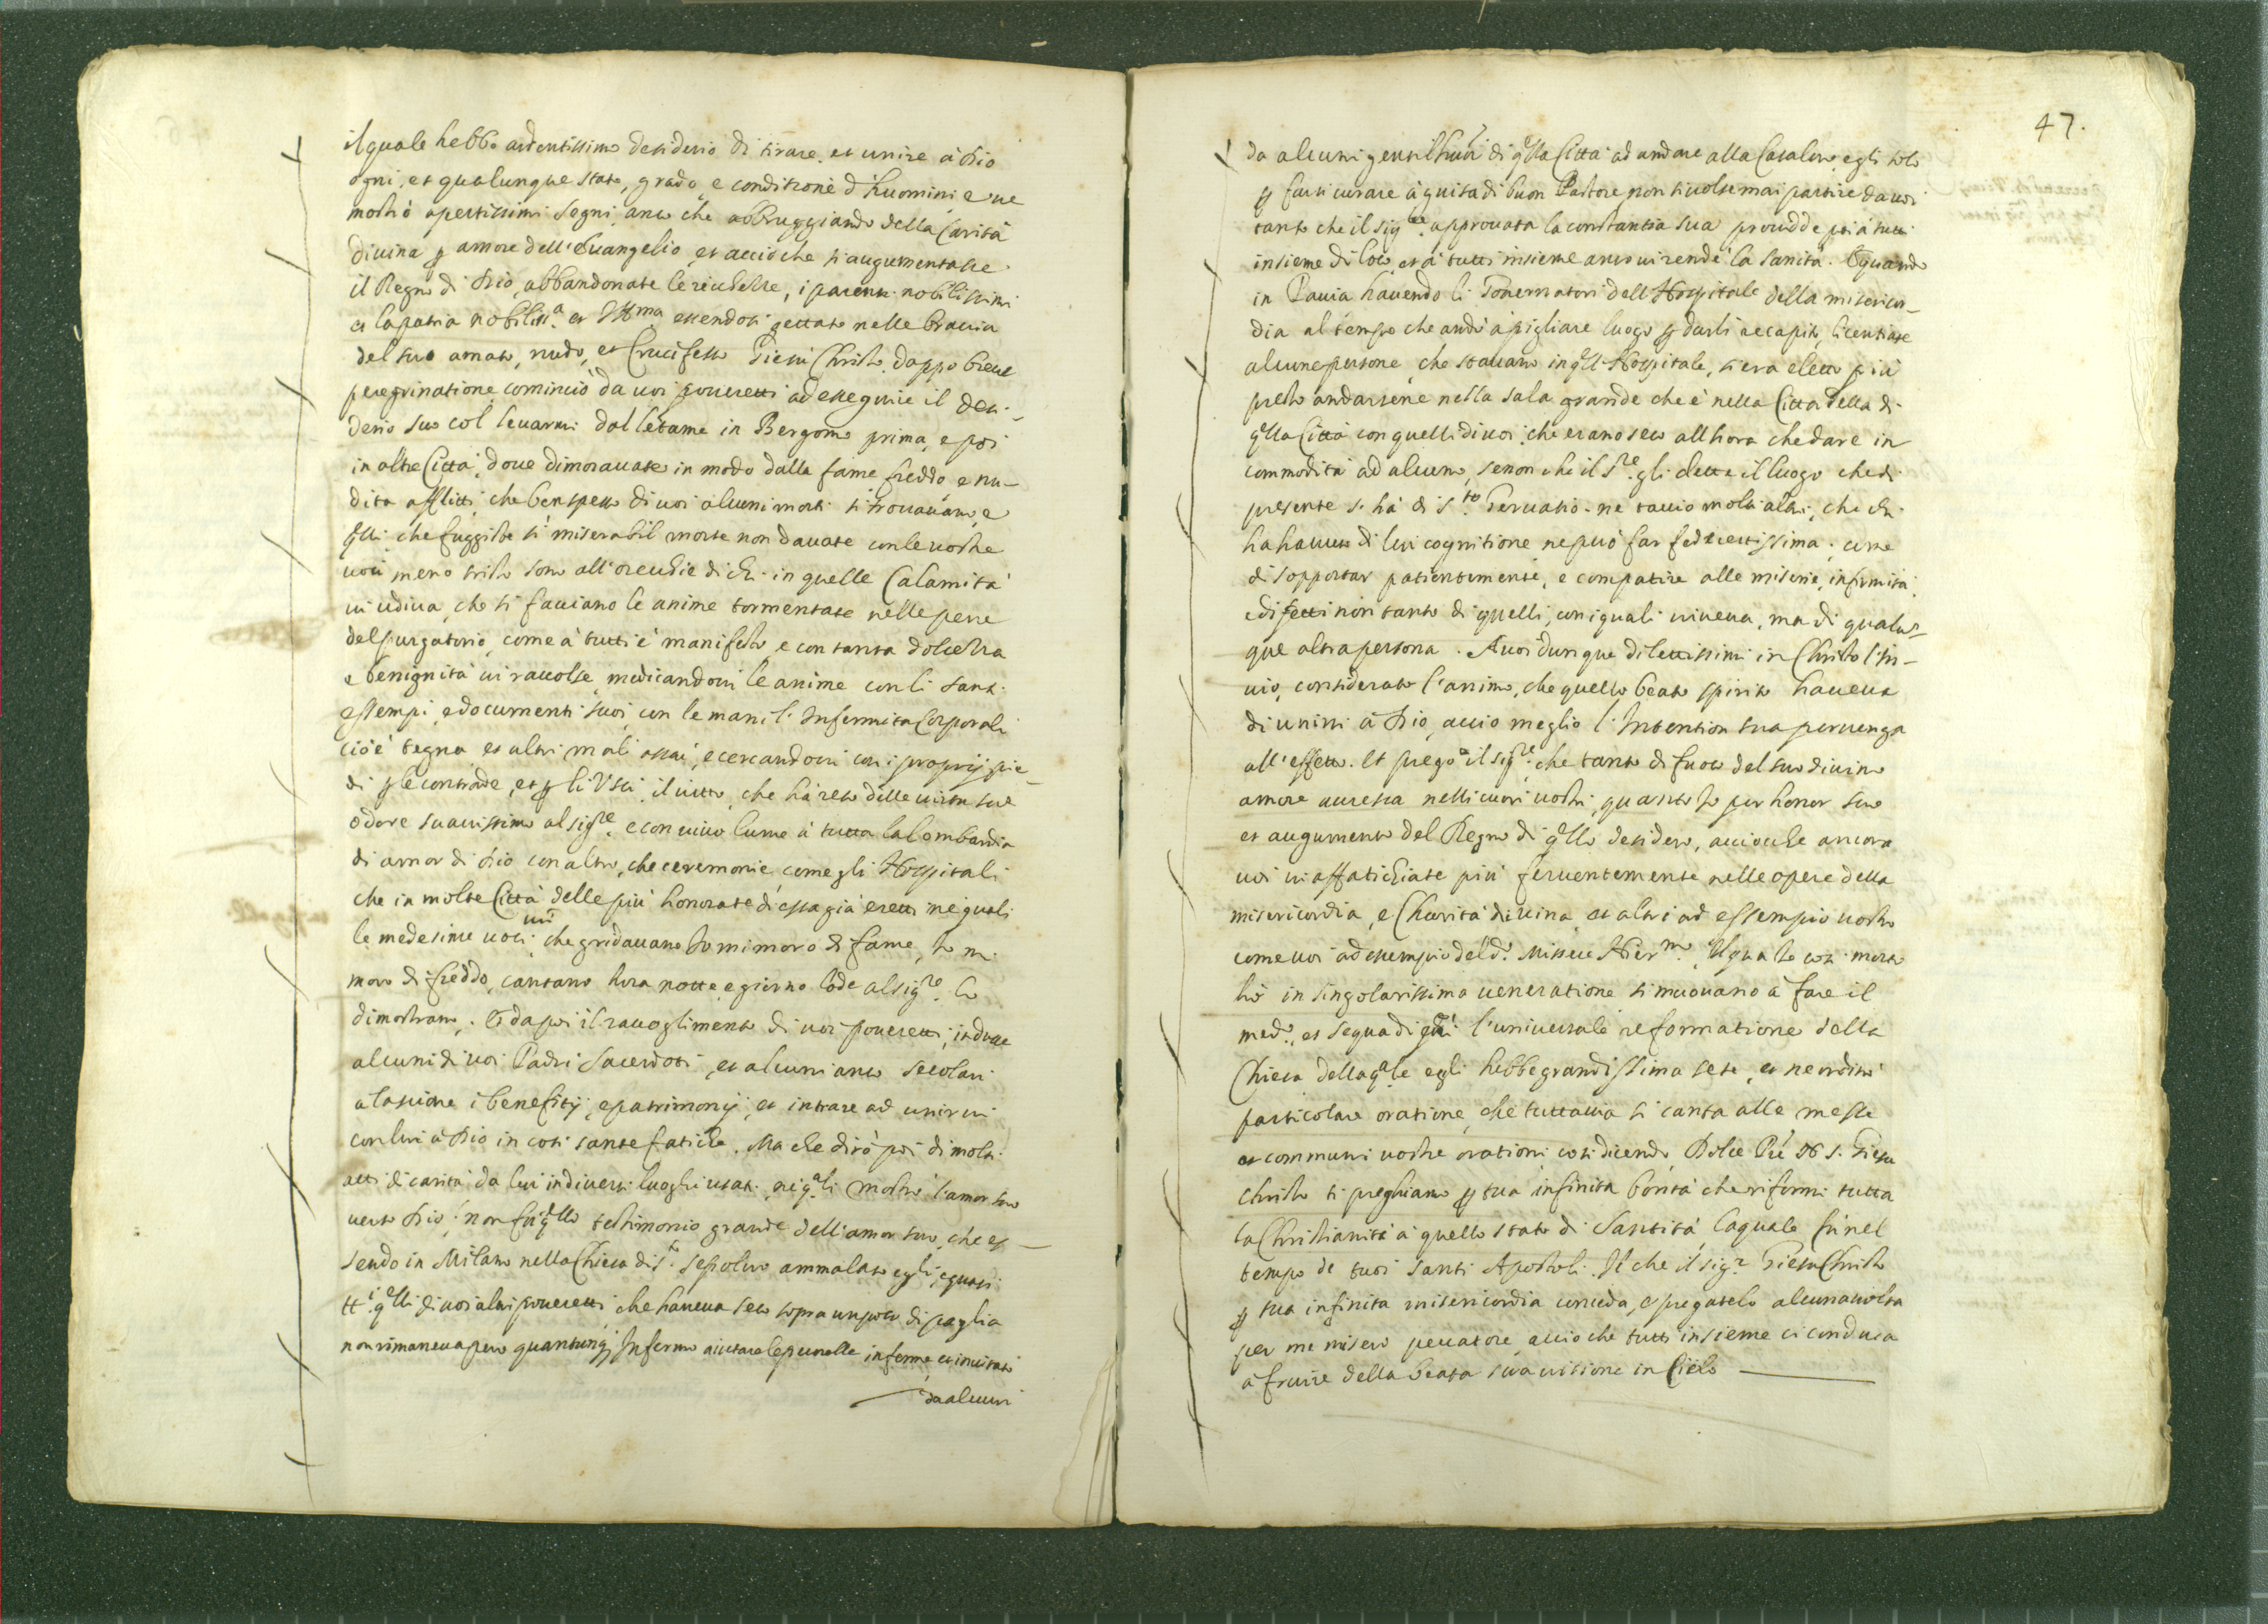 il quale hebbe ardentissimo desiderio di tirare, et unire à Dio
ogni, et qualunque stato, grado, e conditione d'huomini, e ne
mostrò apertissimi segni, anco che abbruggiando della Carità
divina p amore dell'Euangelio, et acciò che si augumentasse
il Regno di Dio, abbandonate le ricchezze, i parenti nobilissimi
et la patria nobiliss.a et Ill.ma essendosi gettato nelle braccia
del suo amato, nudo, et Crucifisso Giesù Christo, doppo breue
peregrinatione cominciò da uoi poueretti ad esseguire il desi-
derio suo col leuarui dal letame in Bergomo prima, e poi
in altre Città, doue dimorauate in modo dalla fame freddo, e nu-
dità afflitti, che ben spesso di uoi alcuni morti si trouauano, e
qlli che fuggiste si miserabil morte non dauate con le uostre
uoci meno tristo sono all'orecchie di chi in quelle Calamità
ui udiua, che si facciano le anime tormentate nelle pene
del purgatorio, come à tutti è manifesto, e con tanta dolcezza
e benignità ui raccolse, medicandoui le anime con li santi
essempi, e documenti suoi, con le mani l'Infermità Corporali
cioè tegna, et altri mali assai, e cercandoui con i proprij pie-
di p le contrade, et p li Usci il uitto, che hà reso delle uirtu sue
odore suauissimo al sig.re, e con uiuo lume à tutta la lombardia
di amor di Dio con altro, che ceremonie, come gli Hospitali
che in molte Città delle più honorate di essa già eretti ne quali
le medesime uoci, che gridauano Io mi moro di fame, Io mi
moro di freddo, cantano hora notte, e giorno lode al sig.re lo
dimostrano. E dapoi il raccoglimento di uoi poueretti, indusse
alcuni di uoi Padri Sacerdoti, et alcuni anco secolari
a lasciare i benefitij, e patrimonij, et intrare ad unirui
con lui à Dio in così sante fatiche. Ma che dirò poi di molti
atti di carità da lui in diuersi luoghi usati, ne q.ali mostrò l'amor suo
uerso Dio; non fu qllo testimonio grande dell'amor suo, che es-
sendo in Milano nella Chiesa di s.to sepolcro ammalato egli, e quasi
tt.i qlli di uoi altri poueretti, che haueua seco sopra un poco di paglia
non rimaneua pero quantunq; Infermo aiutare le pecorelle inferme, et inuitato
da alcuni
47.
da alcuni gentilhuoi di qlla Città ad andare alla Casa loro, egli solo
p farsi curare à guisa di buon Pastore non si uolse mai partire da uoi
tanto che il sig.re approuata la constantia sua prouidde poi à tutti
insieme di loco, et à tutti insieme anco ui rendè la sanità. E quando
in Pauia hauendo li Gouernatori dell'Hospitale della misericor-
dia al tempo che andò à pigliare luogo p darli recapito, licentiate
alcune persone, che stauano in qll'Hospitale, si era eletto più
presto andarsene nella sala grande che è nella Cittadella di
qlla Città con quelli di uoi, che erano seco all'hora che dare in
commodità ad alcuno, se non che il s.re gli dette il luogo che di
presente s'hà di s.to Geruasio. ne taccio molti altri, che chi
ha hauuto di lui cognitione ne può far fede certissima, come
di sopportar patientemente, e compatire alle miserie, infirmità,
e difetti non tanto di quelli, con i quali uiueua, ma di qualun-
que altra persona. A uoi dunque dilettissimi in Christo l'in-
uio, considerato l'animo, che quello beato spirito haueua
di unirui à Dio, acciò meglio l'Intention sua peruenga
all'effetto. Et prego il sig.re che tanto di fuoco del suo diuino
amore accresca nelli cuori uostri, quanto Io per honor suo
et augumento del Regno di qllo desidero, acciocche ancora
uoi ui affatichiate più feruentemente nelle opere della
misericordia, e Charità diuina, et altri ad essempio uostro
come uoi ad essempio del d.o Missere Hier.mo, il qua Io così morto
hò in singolarissima ueneratione si muouano à fare il
med.o, et segua di qui l'uniuersale reformatione della
Chiesa della q.le egli hebbe grandissima sete, et ne ordinò
particolare oratione, che tuttauia si canta alle messe
et communi uostre orationi così dicendo Dolce Pre N s. Giesu
Christo ti preghiamo p tua infinita bontà che riformi tutta
la Christianità à quello stato di Santità, la quale fù nel
tempo de tuoi santi Apostoli. Il che il sig.r Giesu Christo
p sua infinita misericordia conceda, e pregatelo alcuna uolta
per me misero peccatore, acciò che tutti insieme ci conduca
à fruire della beata sua uisione in Cielo